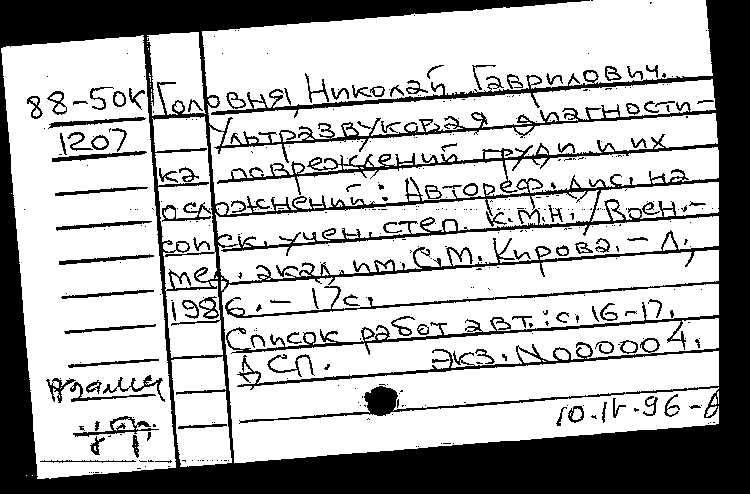 88-50к Головня, Николай Гаврилович.
1207 Ультразвуковая диагности-
ка повреждений груди и их
осложнений.: Автореф. дис. на
соиск. учен. степ. к.м.н. / Воен.-
мед. акад. им. С.М. Кирова. - Л.,
1986. - 17с.
Список работ авт.: с. 16-17.
ДСП. Экз. N000004.